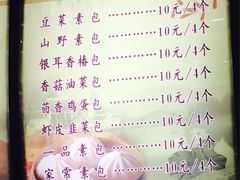 豆菜素包…………10元/4个
山野素包…………10元/4个
银耳香椿包…………10元/4个
香菇油菜包…………10元/4个
茴香鸡蛋包…………10元/4个
虾皮韭菜包…………10元/4个
一品素包…………10元/4个
家常素包…………10元/4个